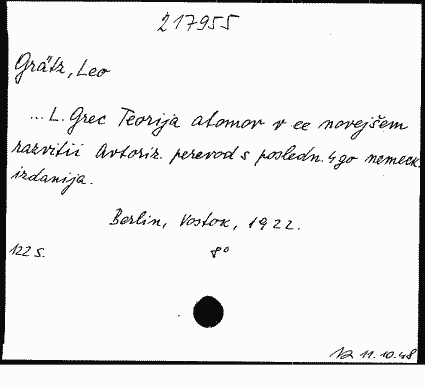 217955
Grätz, Leo
... L. Grec Teorija atomov v ee novejšem
razvitii Avtoriz. perevod s posledn. 4 go nemeck.
izdanija.
Berlin, Vostok, 1922.
122 S.
8°
11.10.48